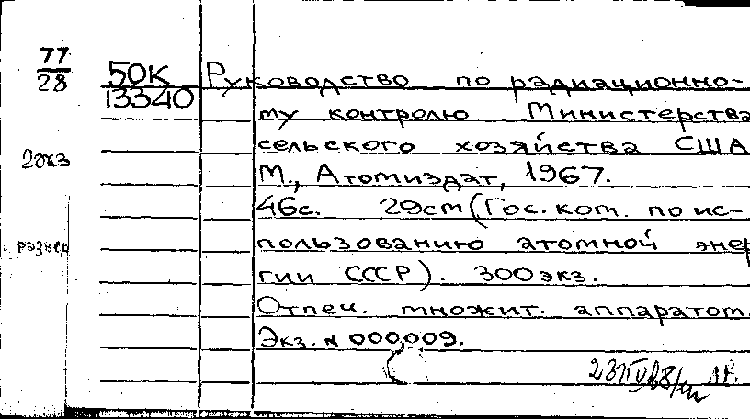 77
28
50К
13340
2экз
Руководство по радиационно-
му контролю Министерства
сельского хозяйства США
М., Атомиздат, 1967.
46с. 29cm (Гос. ком. по ис-
пользованию атомной энер
гии СССР). 300экз.
Отпеч. множит. аппаратом.
Экз. N 000009.